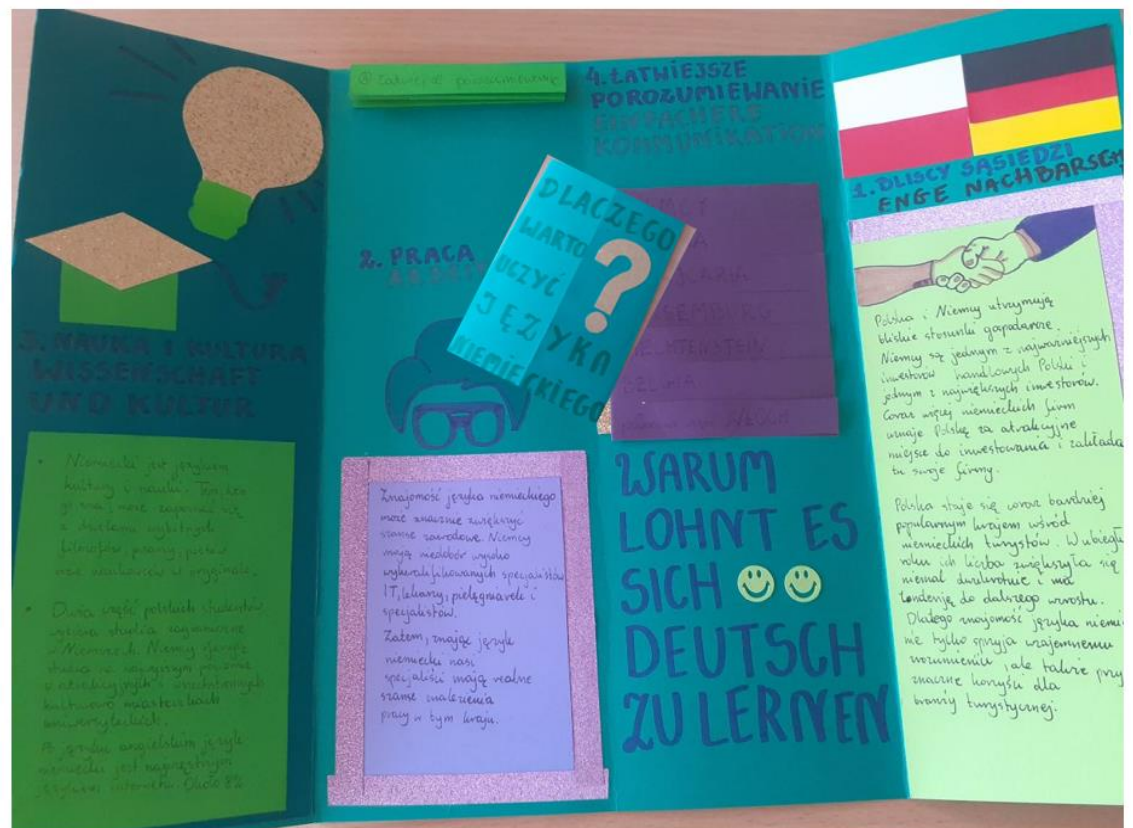 3. NAUKA I KULTURA
WISSENSCHAFT
UND KULTUR
• Niemiecki jest językiem
kultury i nauki. Ten, kto
go zna, może zapoznać się
z dziełami wybitnych
filozofów, pisarzy,
oraz naukowców w oryginale.
• Duża część polskich studentów
studia zagraniczne
w Niemczech. Niemcy oferują
studia na najwyższym poziomie
w atrakcyjnych i
kulturowo miasteczkach
uniwersyteckich.
Po języku angielskim język
niemiecki jest najczęstszym
językiem internetu. Około 8%
porozumiewanie
2. PRACA
ARBEIT
DLACZEGO
WARTO
UCZYĆ
JĘZYKA
NIEMIECKIEGO
?
Znajomość języka niemieckiego
może znacznie zwiększyć
szanse zawodowe. Niemcy
mają niedobór wysoko
wykwalifikowanych specjalistów
IT, lekarzy, pielęgniarek i
specjalistów.
Zatem, znając język
niemiecki nasi
specjaliści mają realne
szanse znalezienia
pracy w tym kraju.
4. ŁATWIEJSZE
POROZUMIEWANIE
EINFACHERE
KOMMUNIKATION
BELGIA
WŁOCH
WARUM
LOHNT ES
SICH
DEUTSCH
ZU LERNEN
1. BLISCY SĄSIEDZI
ENGE NACHBARSCH
Polska i Niemcy utrzymują
bliskie stosunki gospodarze.
Niemcy są jednym z najważniejszych
inwestorów handlowych Polski i
jednym z największych inwestorów.
Coraz więcej niemieckich firm
uznaje Polskę za atrakcyjne
miejsce do inwestowania i zakłada
tu swoje firmy.
Polska staje się coraz bardziej
popularnym krajem wśród
niemieckich turystów. W ubiegłu
roku ich liczba zwiększyła się
niemal dwukrotnie i ma
tendenję do dalszego wzrostu.
Dlatego znajomość języka niemi
nie tylko sprzyja wzajemnemu
zrozumieniu, ale także przy
znaczne korzyści dla
branży turystycznej.